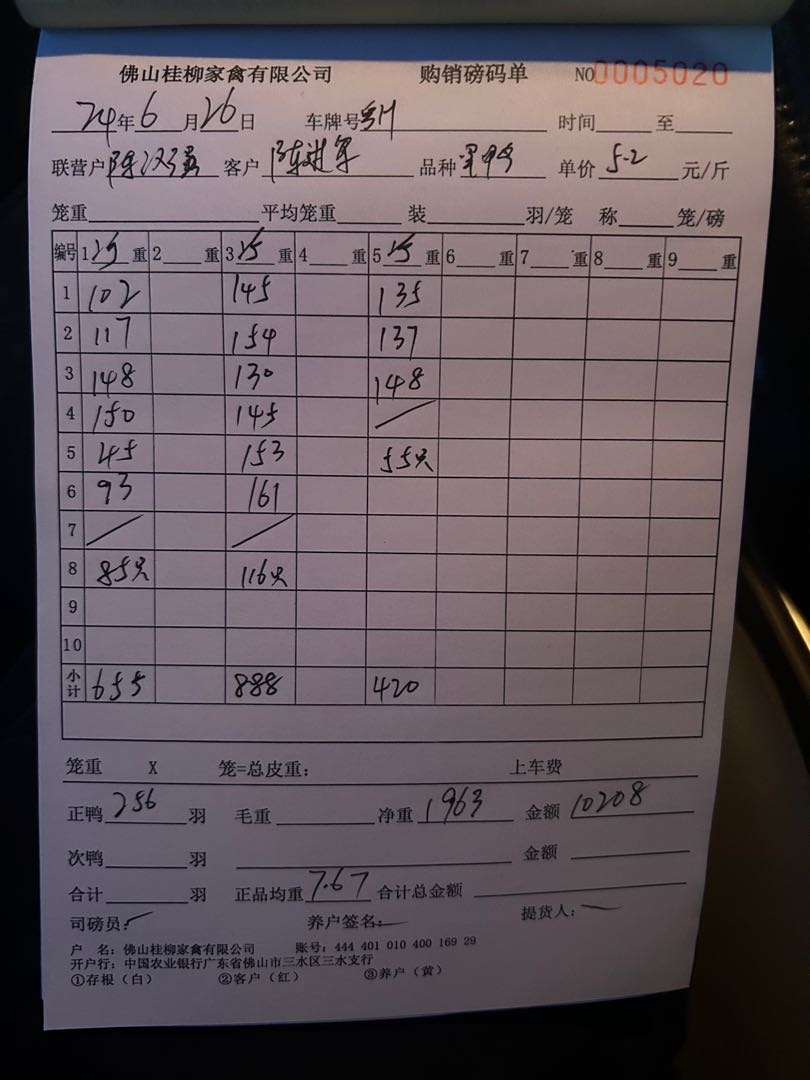 佛山桂柳家禽有限公司 购销磅码单 NO0005020
24年6月26日 车牌号 时间 至
联营户陈汉强 客户 陈进军 品种 单价 5.2 元/斤
笼重 平均笼重 装 羽/笼 称 笼/磅
编号 1 净 重 2 重 3 净 重 4 重 5 净 重 6 重 7 重 8 重 9 重
1 102 145 135
2 117 154 137
3 148 130 148
4 150 145 /
5 45 153 55只
6 93 161
7 / /
8 85只 116只
9
10
小计 655 888 420
笼重 X 笼=总皮重: 上车费
正鸭 256 羽 毛重 净重 1963 金额 10208
次鸭 羽 金额
合计 羽 正品均重 7.67 合计总金额
司磅员: 养户签名: 提货人:
户 名: 佛山桂柳家禽有限公司 账号: 444 401 010 400 169 29
开户行: 中国农业银行广东省佛山市三水区三水支行
①存根(白) ②客户(红) ③养户(黄)